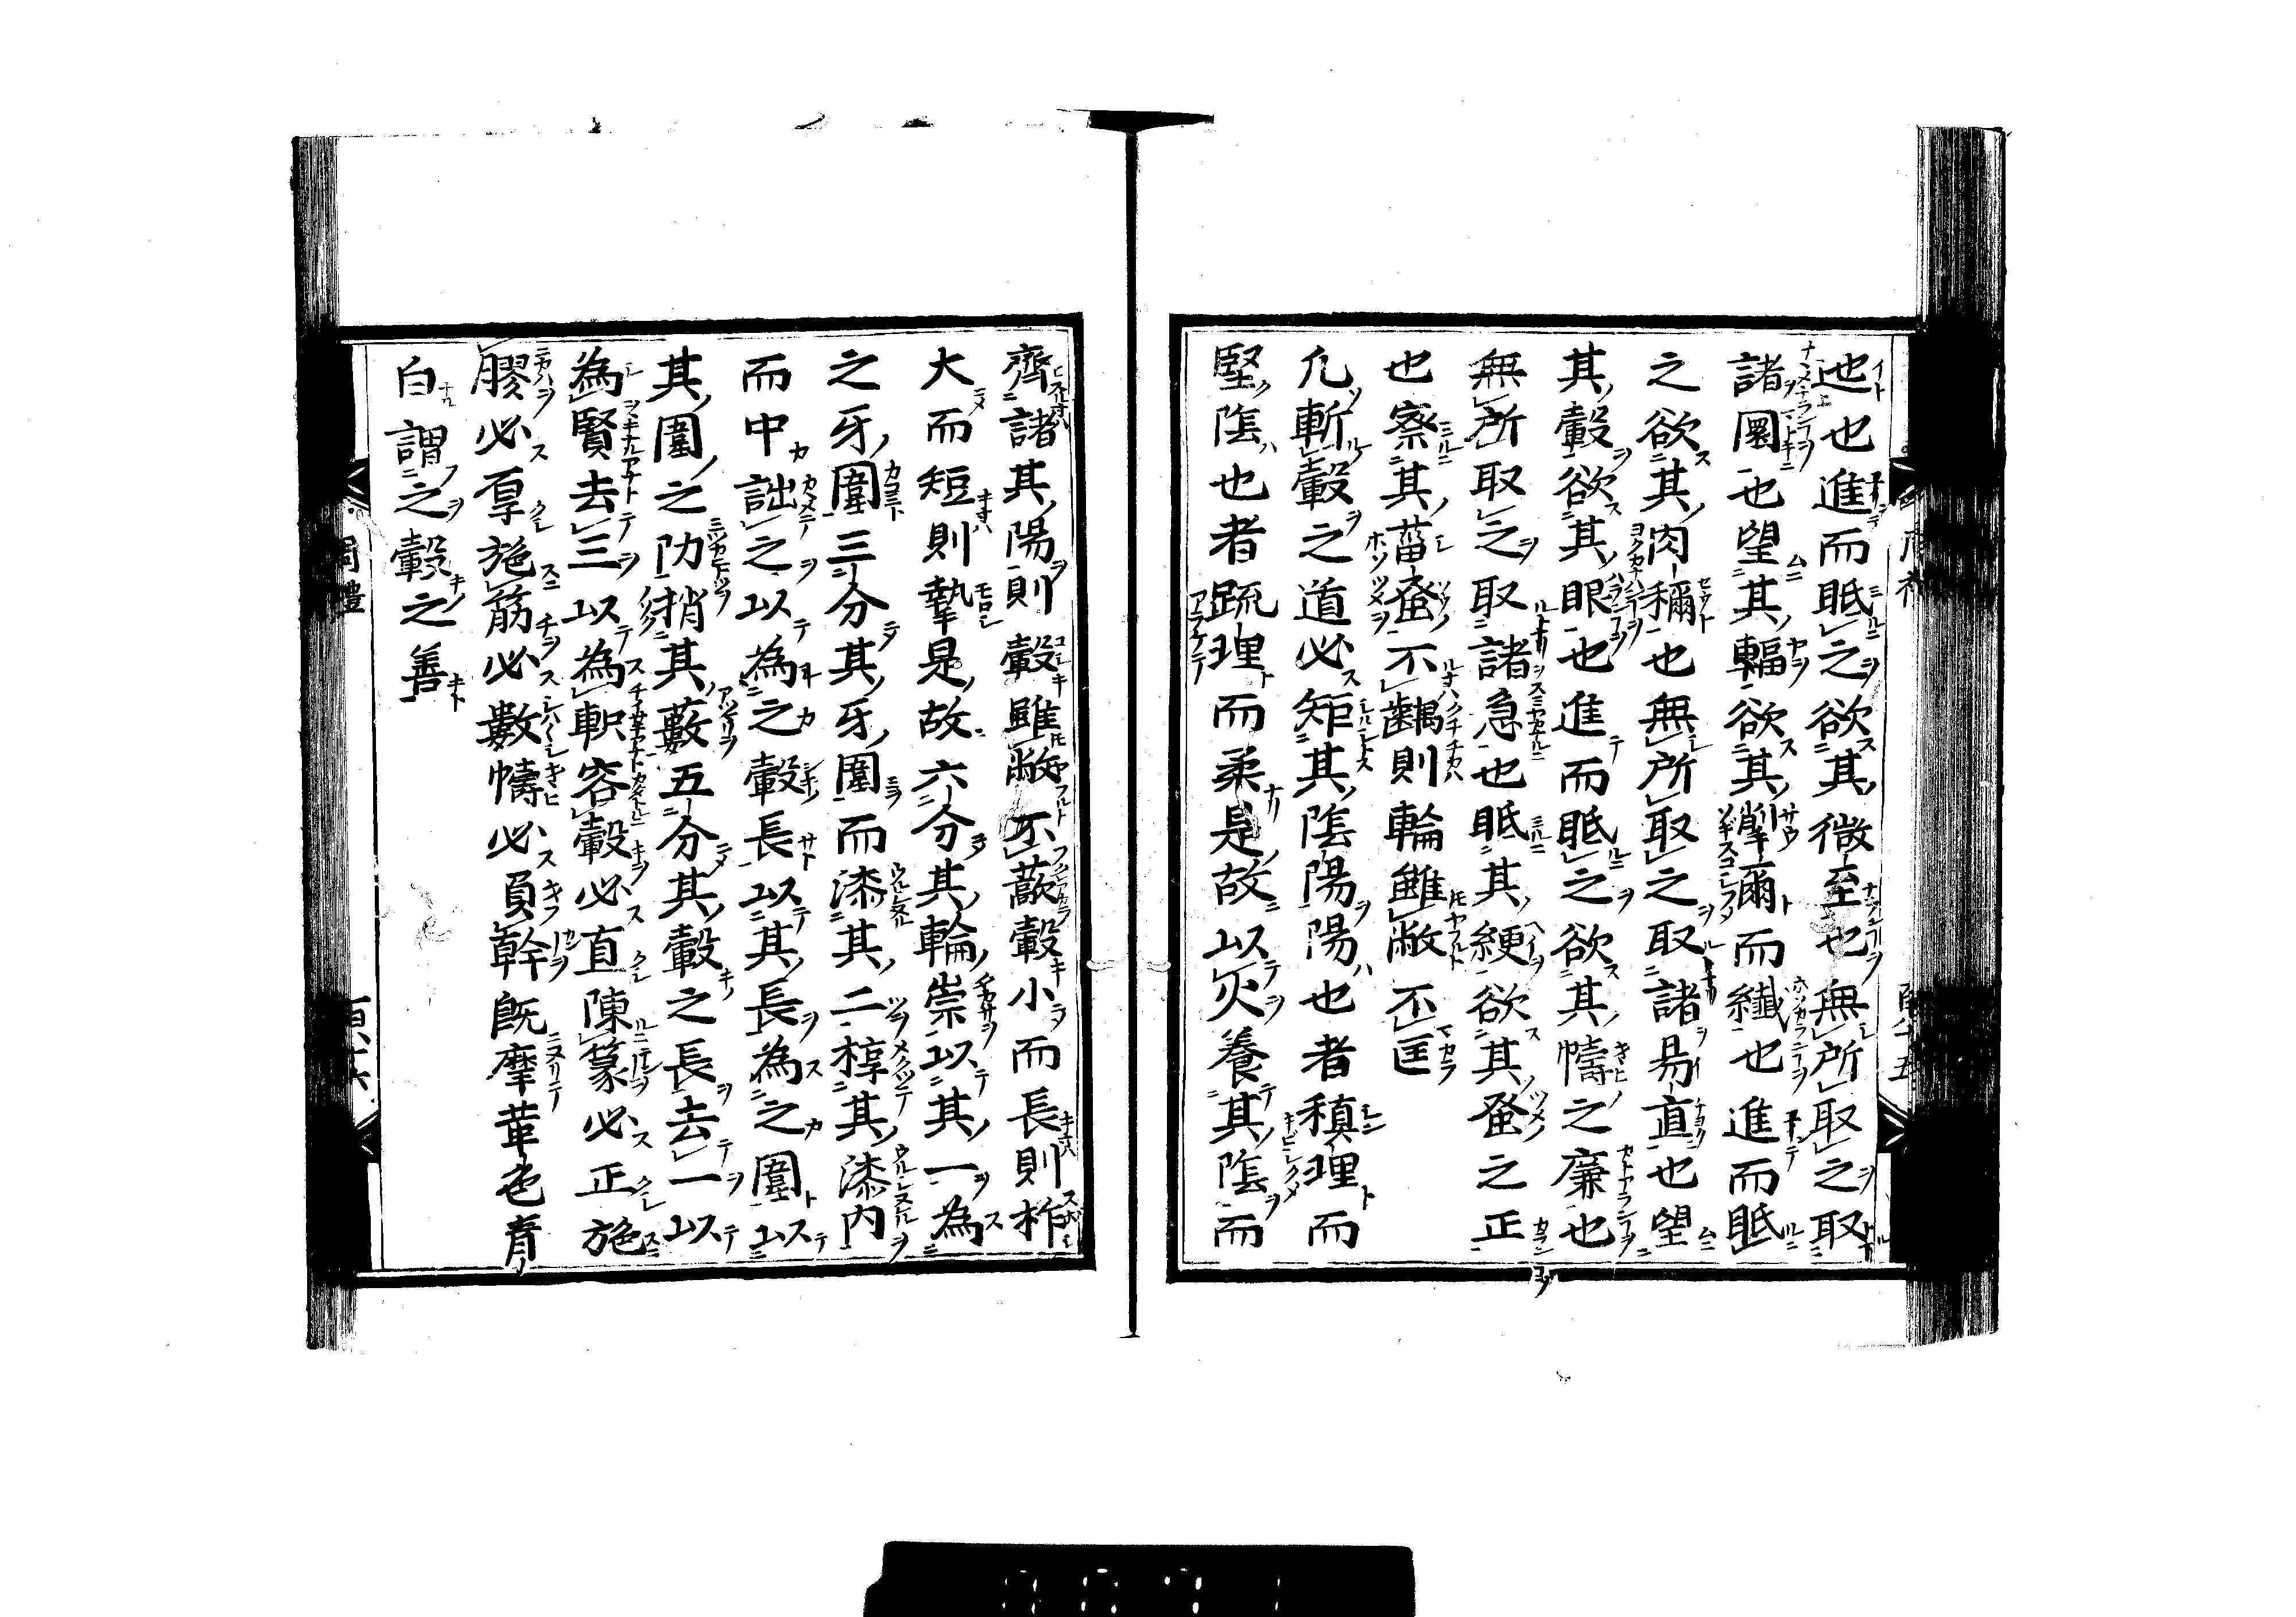 迆也進而眂之欲其微至也無所取之取
諸圜也望其輻欲其揱爾而纖也進而眂
之欲其肉稱也無所取之取諸易直也望
其轂欲其眼也進而眂之欲其幬之廉也
無所取之取諸急也眂其綆欲其蚤之正
也察其菑蚤不齵則輪雖敝不匡
凢斬轂之道必矩其陰陽陽也者稹理而
堅陰也者疏理而柔是故以火養其陰而
齊諸其陽則轂雖敝不蔽轂小而長則柞
大而短則摯是故六分其輪崇以其一為
之牙圍三分其牙圍而漆其二椁其漆內
而中詘之以為之轂長以其長為之圍以
其圍之阞捎其藪五分其轂之長去一以
為賢去三以為軹容轂必直陳篆必正施
膠必厚施筋必數幬必負幹既摩革色青
白謂之轂之善
周禮